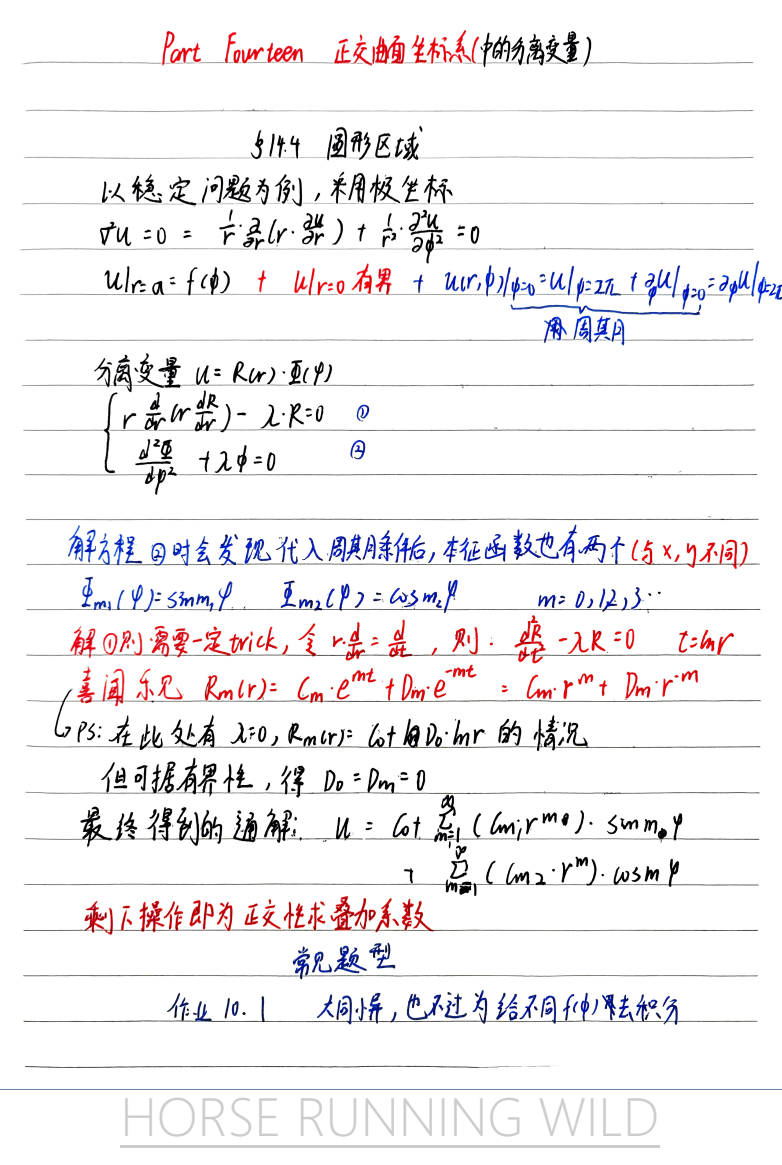 Part Fourteen 正交曲面坐标系(中的分离变量)
§14.4 圆形区域
以稳定问题为例，采用极坐标
∇²u = 0 = 1/r · ∂/∂r (r · ∂u/∂r) + 1/r² · ∂²u/∂φ² = 0
u|r=a = f(φ) + u|r=0 有界 + u(r,φ)|φ=0 = u|φ=2π + ∂φu|φ=0 = ∂φu|φ=2π
周期
分离变量 u = R(r)·Φ(φ)
r d/dr (r dR/dr) - λ·R = 0 ①
d²Φ/dφ² + λφ = 0 ②
解方程②时会发现代入周期条件后, 本征函数也有两个(与x,y不同)
Φm₁(φ) = sin m₁φ Φm₂(φ) = cos m₂φ m = 0,1,2,3··
解①则需要一定trick, 令 r·d/dr = d/dt, 则: d²R/dt² - λR = 0 t = lnr
喜闻乐见 Rm(r) = Cm·e^mt + Dm·e^-mt = Cm·r^m + Dm·r^-m
PS: 在此处有 λ=0, Rm(r) = C₀+ D₀·lnr 的情况
但可据有界性, 得 D₀ = Dm = 0
最终得到的通解: u = C₀+ ∞∑m=1 (Cm₁r^m)· sin mφ
+ ∞∑m=1 (Cm₂·r^m)·cos mφ
剩下操作即为正交性求叠加系数
常见题型
作业 10.1 大同小异, 也不过为给不同f(φ) 去积分
HORSE RUNNING WILD